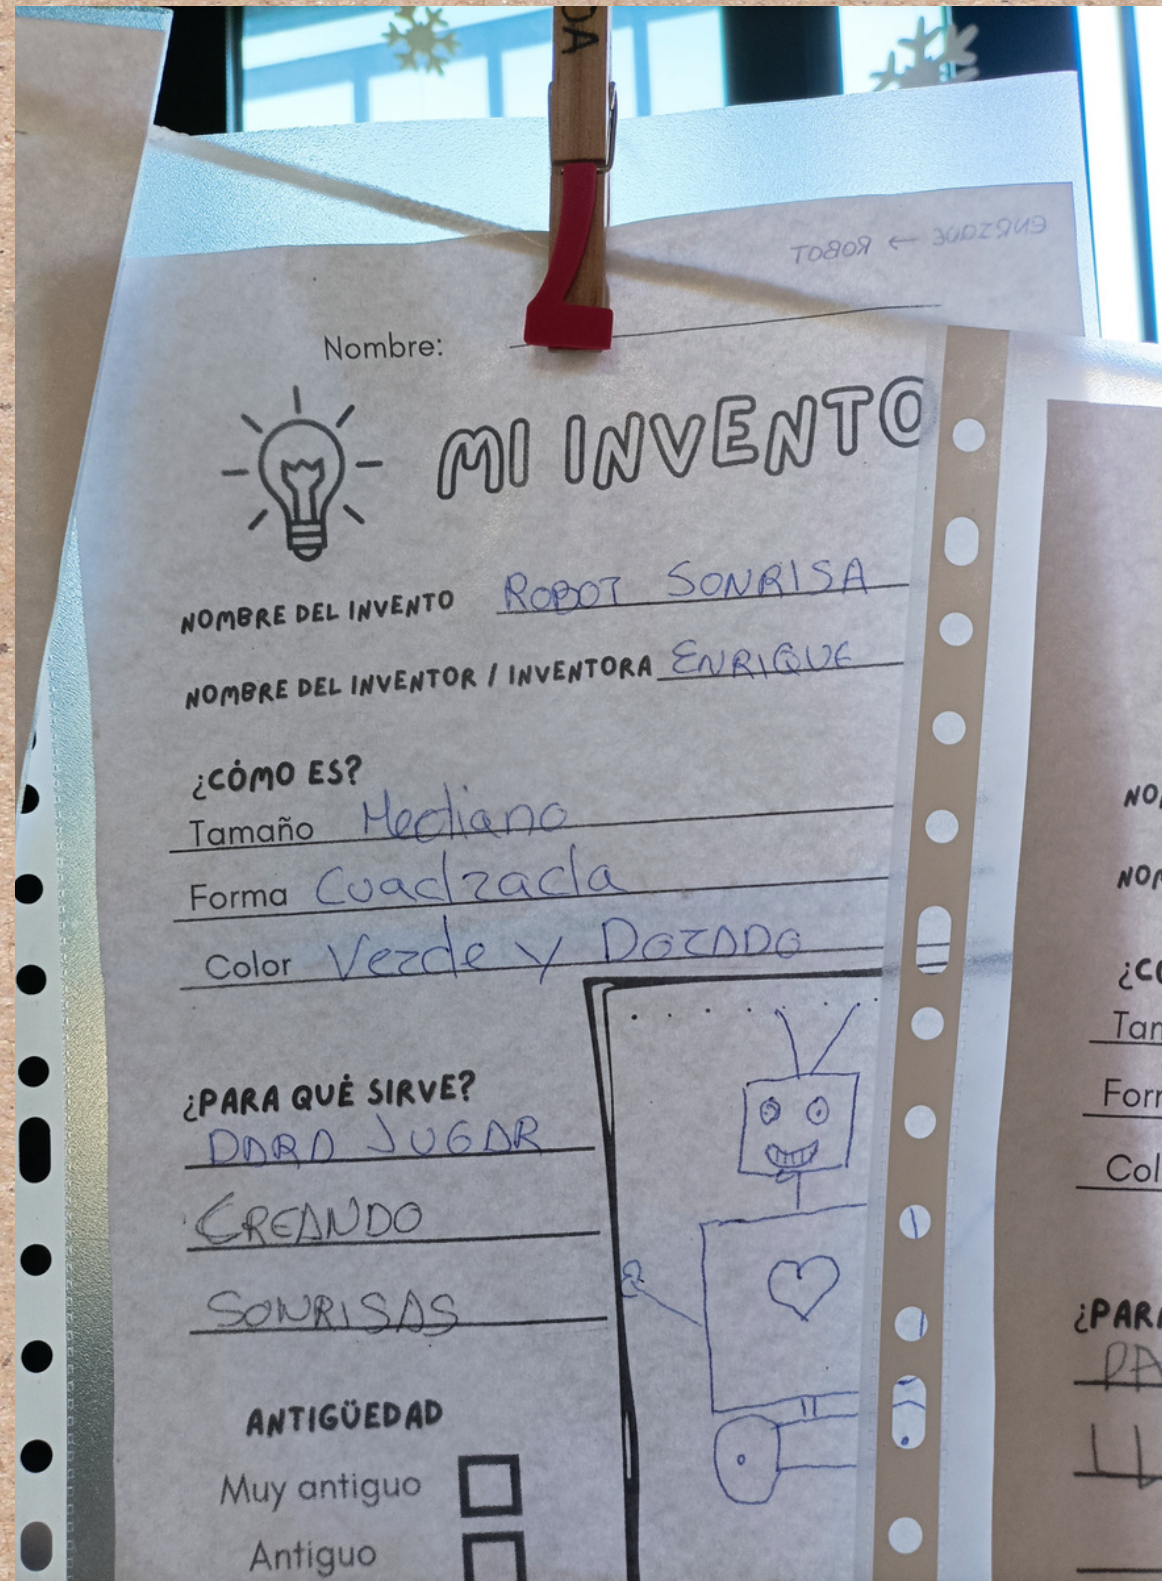 DA
ENRIQUE → ROBOT
Nombre:
MI INVENTO
NOMBRE DEL INVENTO ROBOT SONRISA
NOMBRE DEL INVENTOR / INVENTORA ENRIQUE
¿CÓMO ES?
Tamaño Mediano
Forma Cuadrada
Color Verde y DORADO
¿PARA QUÉ SIRVE?
PARA JUGAR
CREANDO
SONRISAS
ANTIGÜEDAD
Muy antiguo
Antiguo
NO
NO
¿C
Ta
For
Col
¿PAR
PA